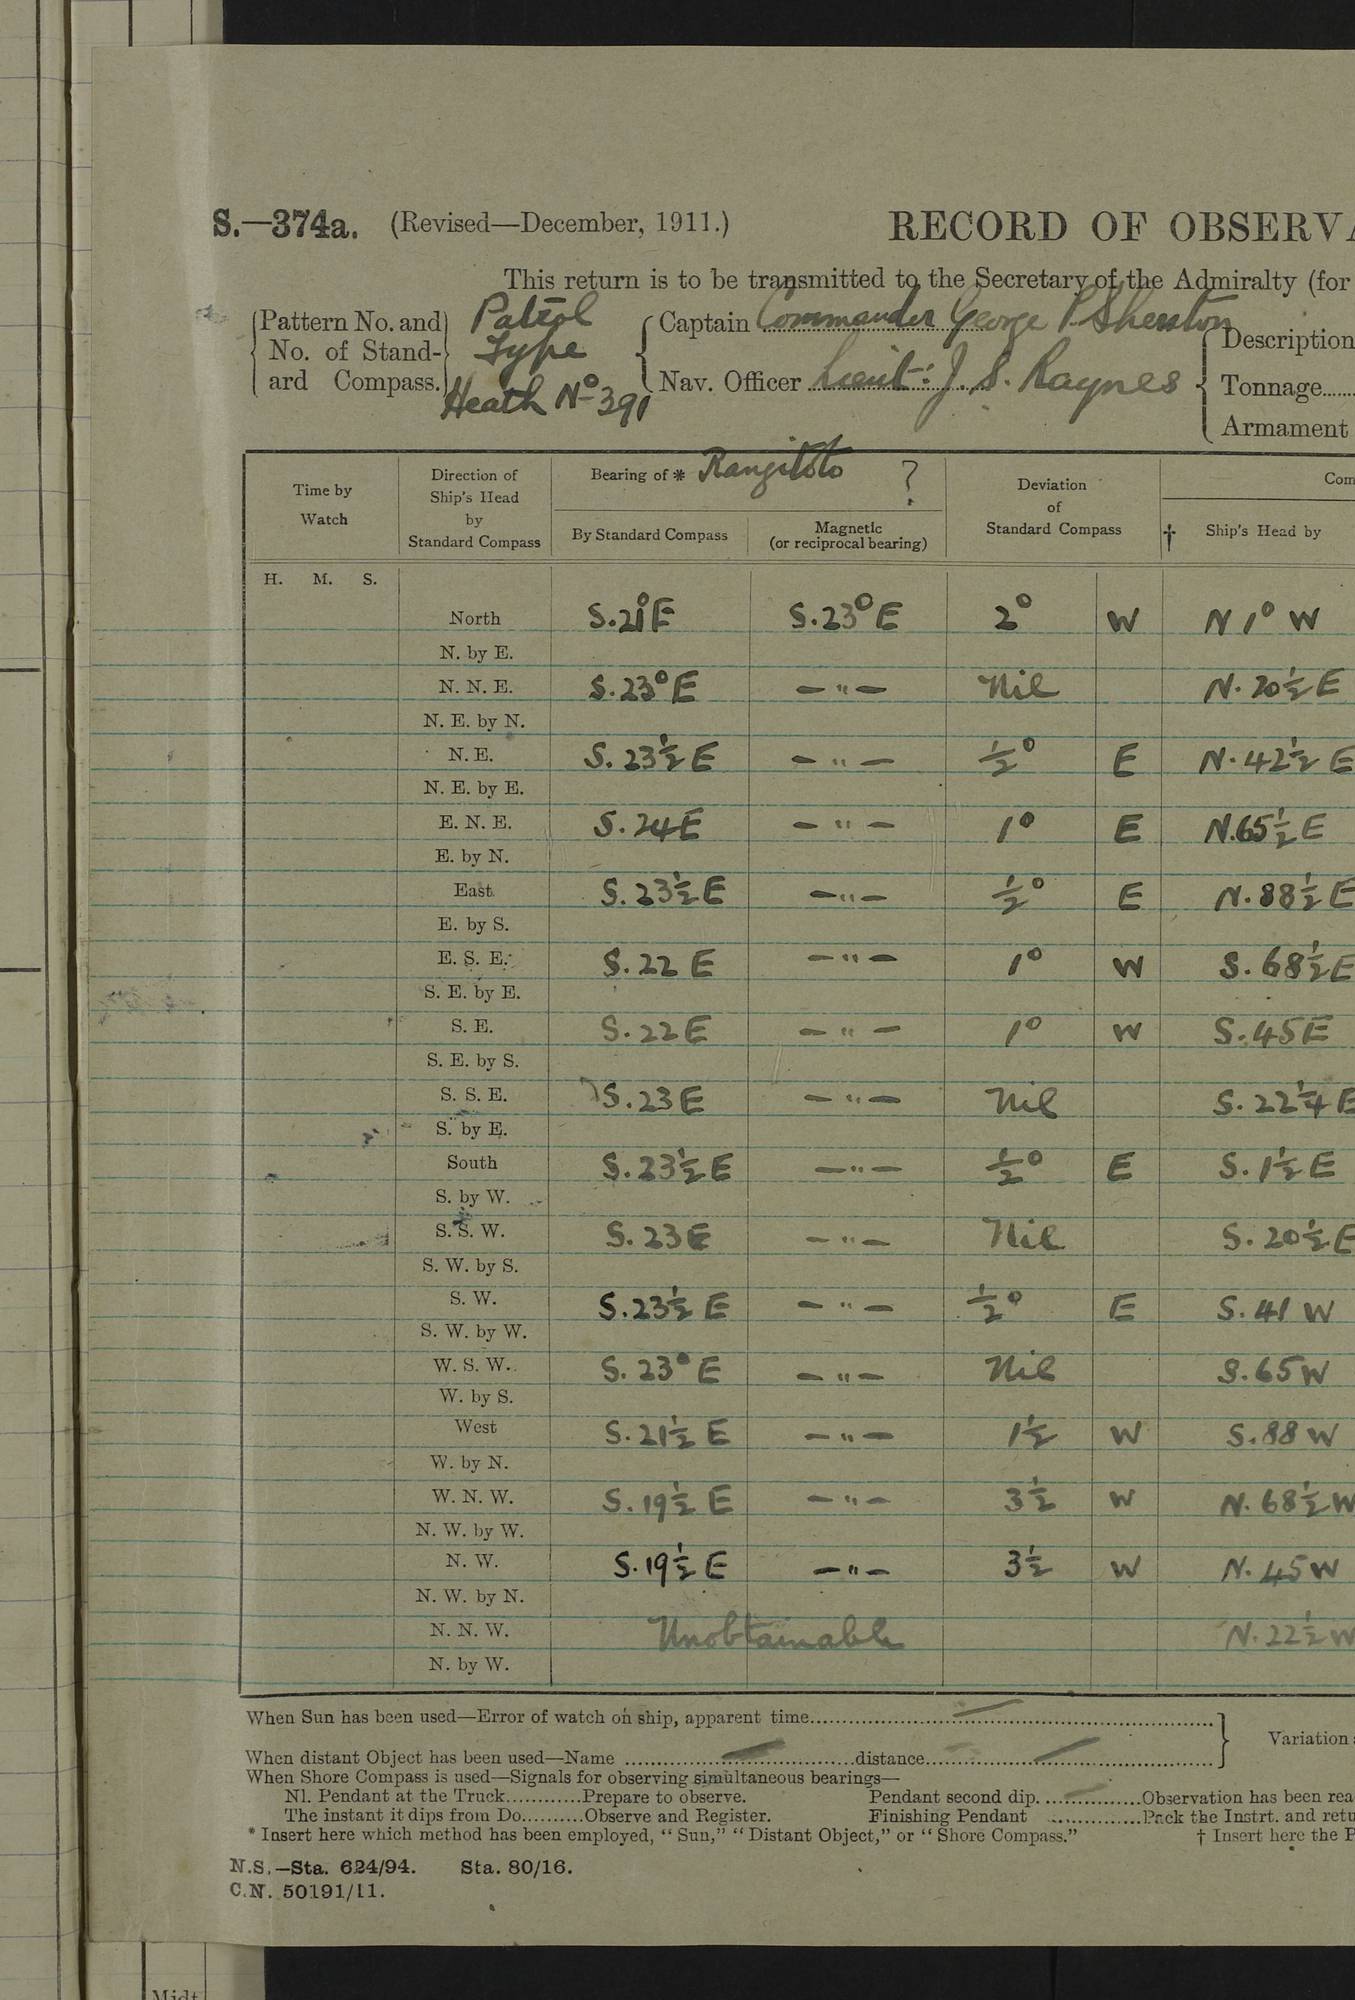 S.—374a. (Revised—December, 1911.) RECORD OF OBSERVA
This return is to be transmitted to the Secretary of the Admiralty (for
Pattern No. and No. of Standard Compass. Patrol Type Heath No 391
Captain Commander George P. Sherston
Nav. Officer Lieut: J. S. Raynes
Description
Tonnage......
Armament
Time by Watch
Direction of Ship's Head by Standard Compass
Bearing of * Rangitoto ?
By Standard Compass
Magnetic (or reciprocal bearing)
Deviation of Standard Compass
Com
† Ship's Head by
H. M. S.
North S.21°E S.23°E 2° W N 1° W
N. by E.
N. N. E. S.23°E —"— Nil N. 20½ E
N. E. by N.
N. E. S. 23½ E —"— ½° E N. 42½ E
N. E. by E.
E. N. E. S. 24 E —"— 1° E N. 65½ E
E. by N.
East S. 23½ E —"— ½° E N. 88½ E
E. by S.
E. S. E. S. 22 E —"— 1° W S. 68½ E
S. E. by E.
S. E. S. 22 E —"— 1° W S. 45 E
S. E. by S.
S. S. E. S. 23 E —"— Nil S. 22¼ E
S. by E.
South S. 23½ E —"— ½° E S. 1½ E
S. by W.
S. S. W. S. 23 E —"— Nil S. 20½ E
S. W. by S.
S. W. S. 23½ E —"— ½° E S. 41 W
S. W. by W.
W. S. W. S. 23° E —"— Nil S. 65 W
W. by S.
West S. 21½ E —"— 1½ W S. 88 W
W. by N.
W. N. W. S. 19½ E —"— 3½ W N. 68½ W
N. W. by W.
N. W. S. 19½ E —"— 3½ W N. 45 W
N. W. by N.
N. N. W. Unobtainable N. 22½ W
N. by W.
When Sun has been used—Error of watch on ship, apparent time..........
When distant Object has been used—Name ..........distance..........
Variation
When Shore Compass is used—Signals for observing simultaneous bearings—
Nl. Pendant at the Truck............Prepare to observe. Pendant second dip. ................Observation has been rea
The instant it dips from Do..........Observe and Register. Finishing Pendant ..............Pack the Instrt. and retu
* Insert here which method has been employed, "Sun," "Distant Object," or "Shore Compass." † Insert here the P
N.S.—Sta. 624/94. Sta. 80/16.
C.N. 50191/11.
Midt